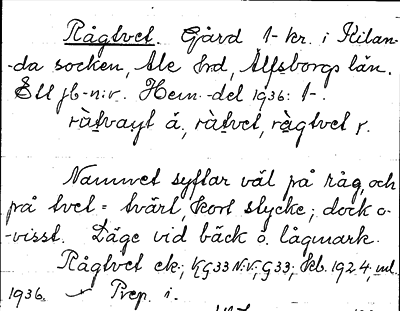 Rågtvet. Gård 1-kr. i Kilan-
-da socken, Ale hrd, Älfsborgs län.
Ett jb-n:r. Hem.-del 1936: 1-.
råtvayt å, råtvet, rågtvet r.
Namnet syftar väl på råg, och
på tvet = tvärt, kort stycke; dock o-
-visst. Läge vid bäck o. lågmark.
Rågtvet ek; KG33 N:V; G33; kb. 1924, ml.
1936. Prep. i.